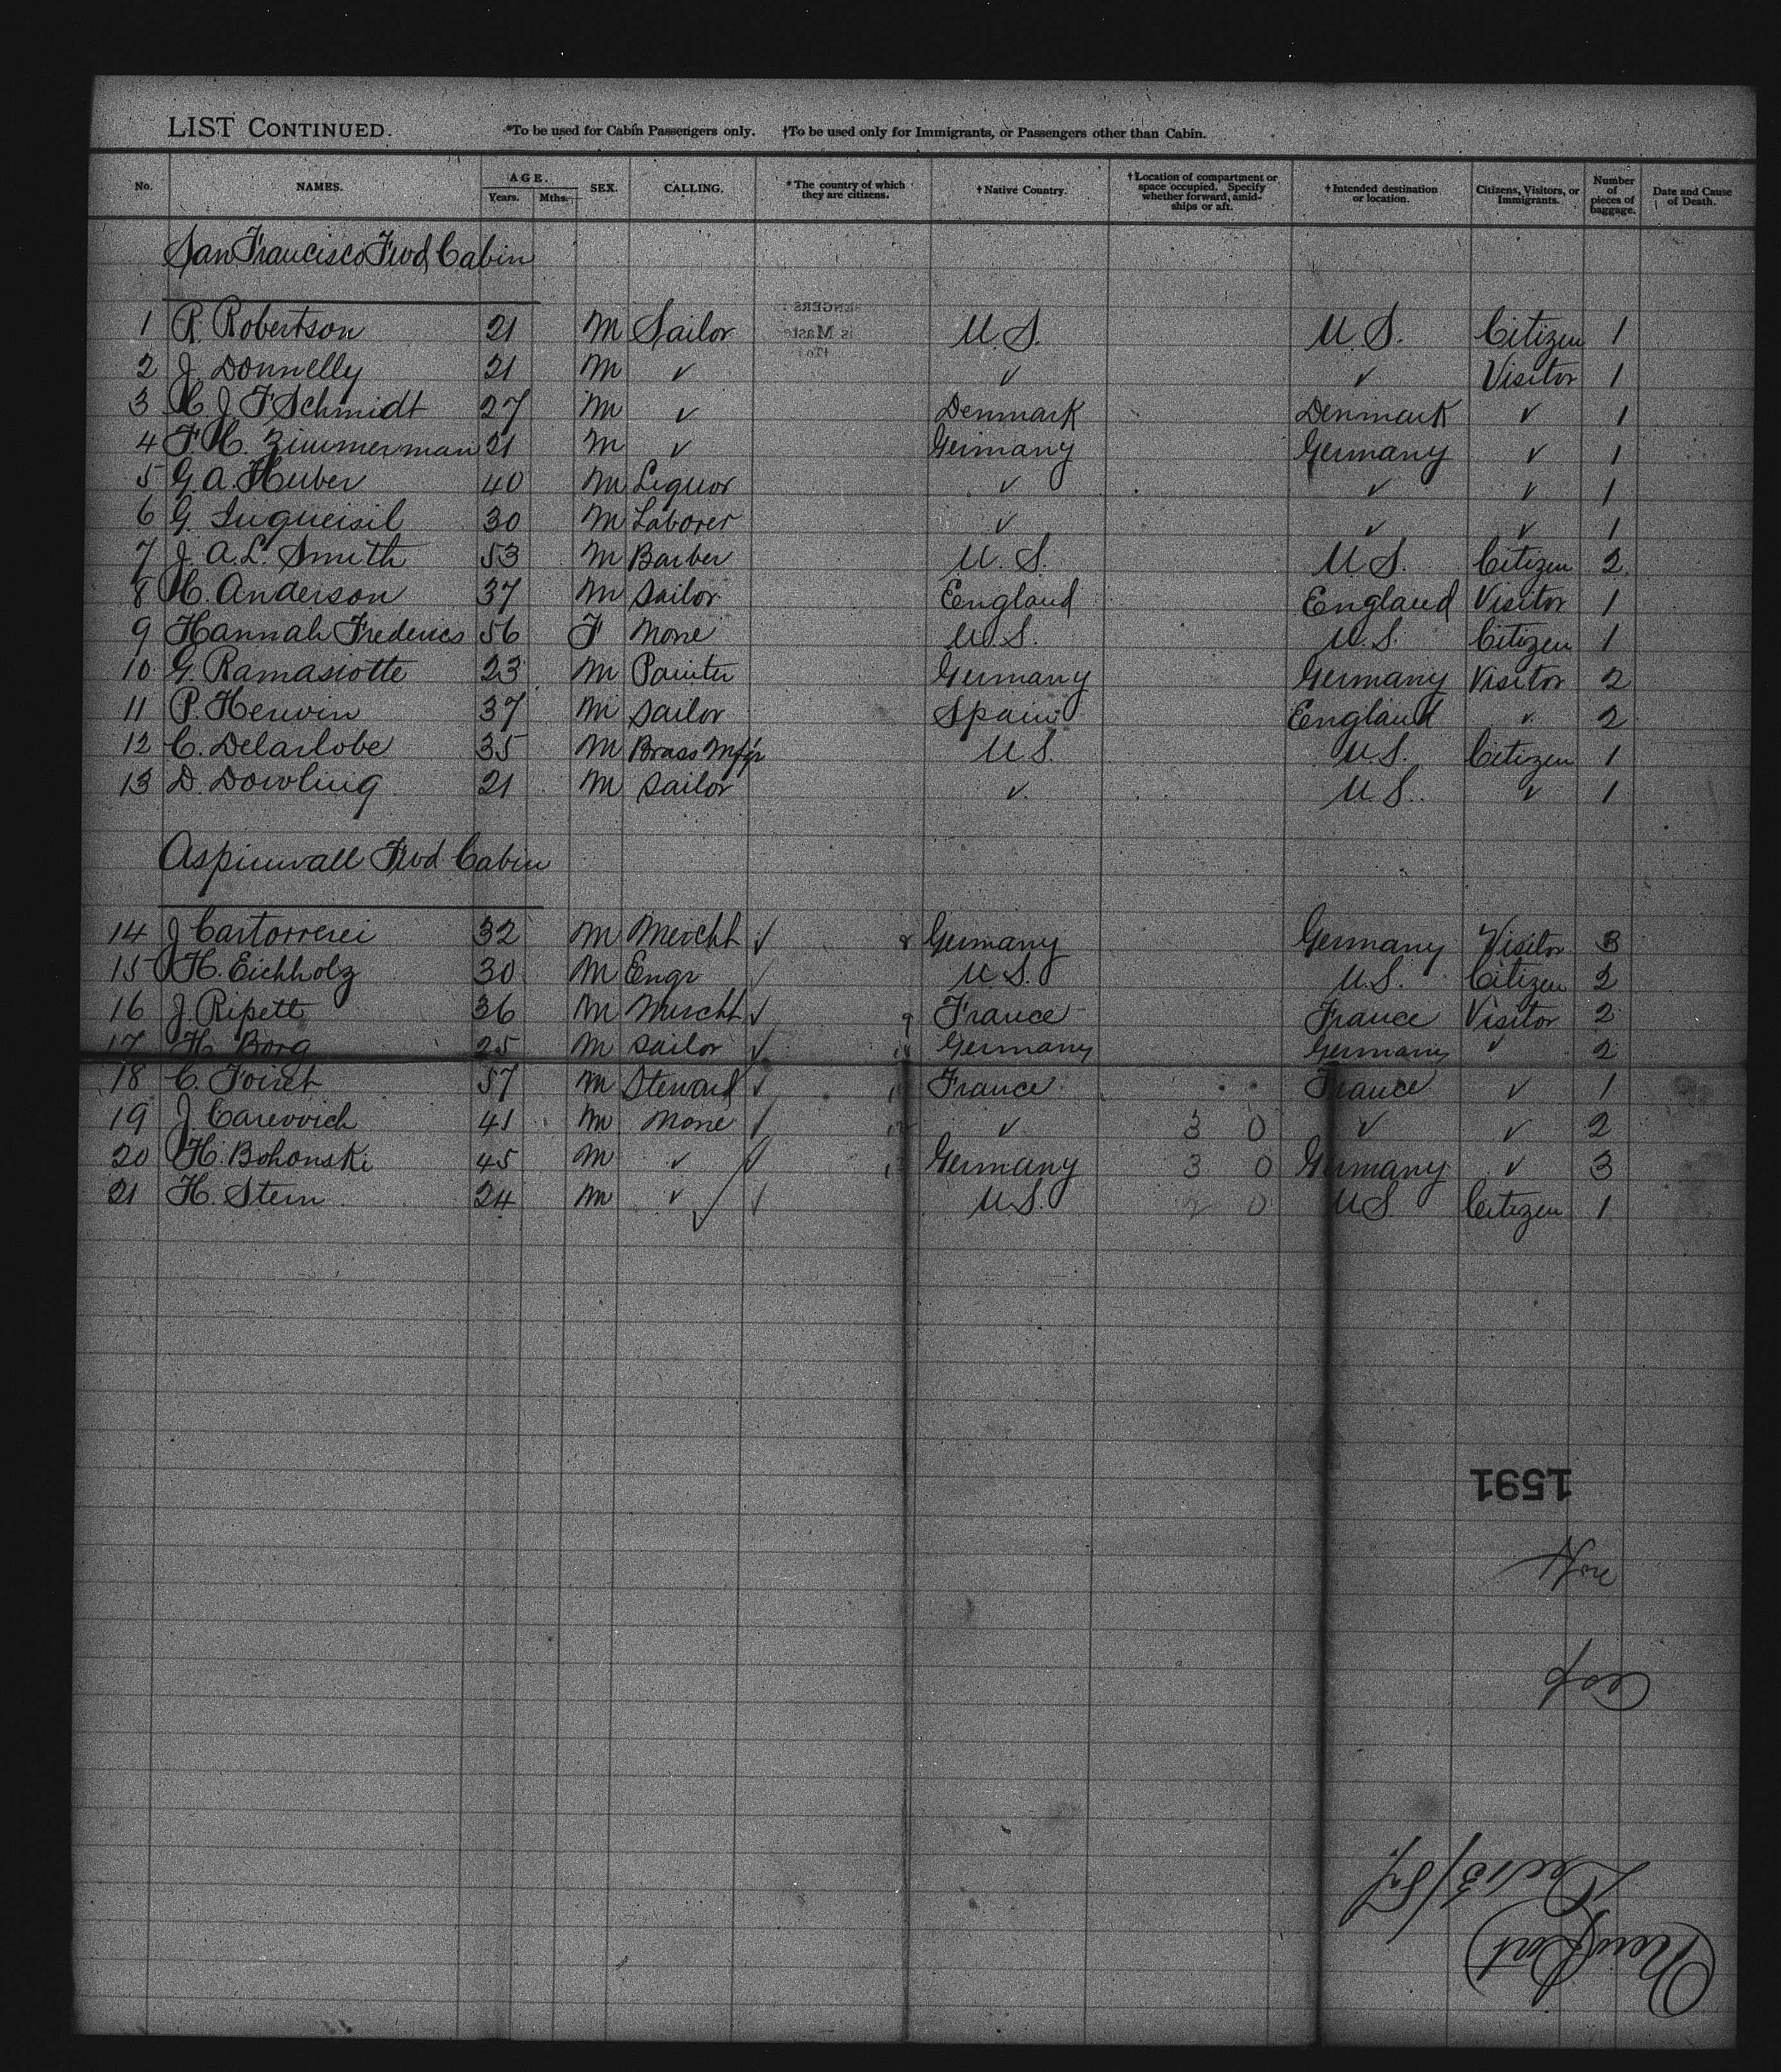 LIST CONTINUED. *To be used for Cabin Passengers only. †To be used only for Immigrants, or Passengers other than Cabin.
No. NAMES. AGE. Years. Mths. SEX. CALLING. * The country of which they are citizens. † Native Country. † Location of compartment or space occupied. Specify whether forward, amidships or aft. † Intended destination or location. Citizens, Visitors, or Immigrants. Number of pieces of baggage. Date and Cause of Death.
San Francisco Fwd Cabin
1 R. Robertson 21 M Sailor U.S. U.S. Citizen 1
2 J. Donnelly 21 M ✓ ✓ ✓ Visitor 1
3 H. J. F Schmidt 27 M ✓ Denmark Denmark ✓ 1
4 F. H. Zimmerman 21 M ✓ Germany Germany ✓ 1
5 G. A. Huber 40 M Liquor ✓ ✓ ✓ 1
6 G. 30 M Laborer ✓ ✓ ✓ 1
7 J. A. L. Smith 53 M Barber U.S. U.S. Citizen 2
8 H. Anderson 37 M Sailor England England Visitor 1
9 Hannah Frederics 56 F None U.S. U.S. Citizen 1
10 G. Ramasiotte 23 M Painter Germany Germany Visitor 2
11 P. Herwin 37 M Sailor Spain England ✓ 2
12 C. Delarlobe 35 M Brass Mfgr U.S. U.S. Citizen 1
13 D. Dowling 21 M Sailor ✓ U.S. ✓ 1
Aspinwall Fwd Cabin
14 J 32 M Mercht ✓ 8 Germany Germany Visitor 3
15 H. Eichholz 30 M Engr ✓ U.S. U.S. Citizen 2
16 J. Ripett 36 M Mercht ✓ 9 France France Visitor 2
17 H. Borg 25 M Sailor ✓ Germany Germany ✓ 2
18 C. Foiret 57 M Steward ✓ France France ✓ 1
19 J. Carevvich 41 M None ✓ 3 0 ✓ ✓ 2
20 H. Bohonski 45 M ✓ Germany 3 0 Germany ✓ 3
21 H. Stern 24 M ✓ U.S. 2 0 U.S. Citizen 1
1591
Dec 13/87.
Newport